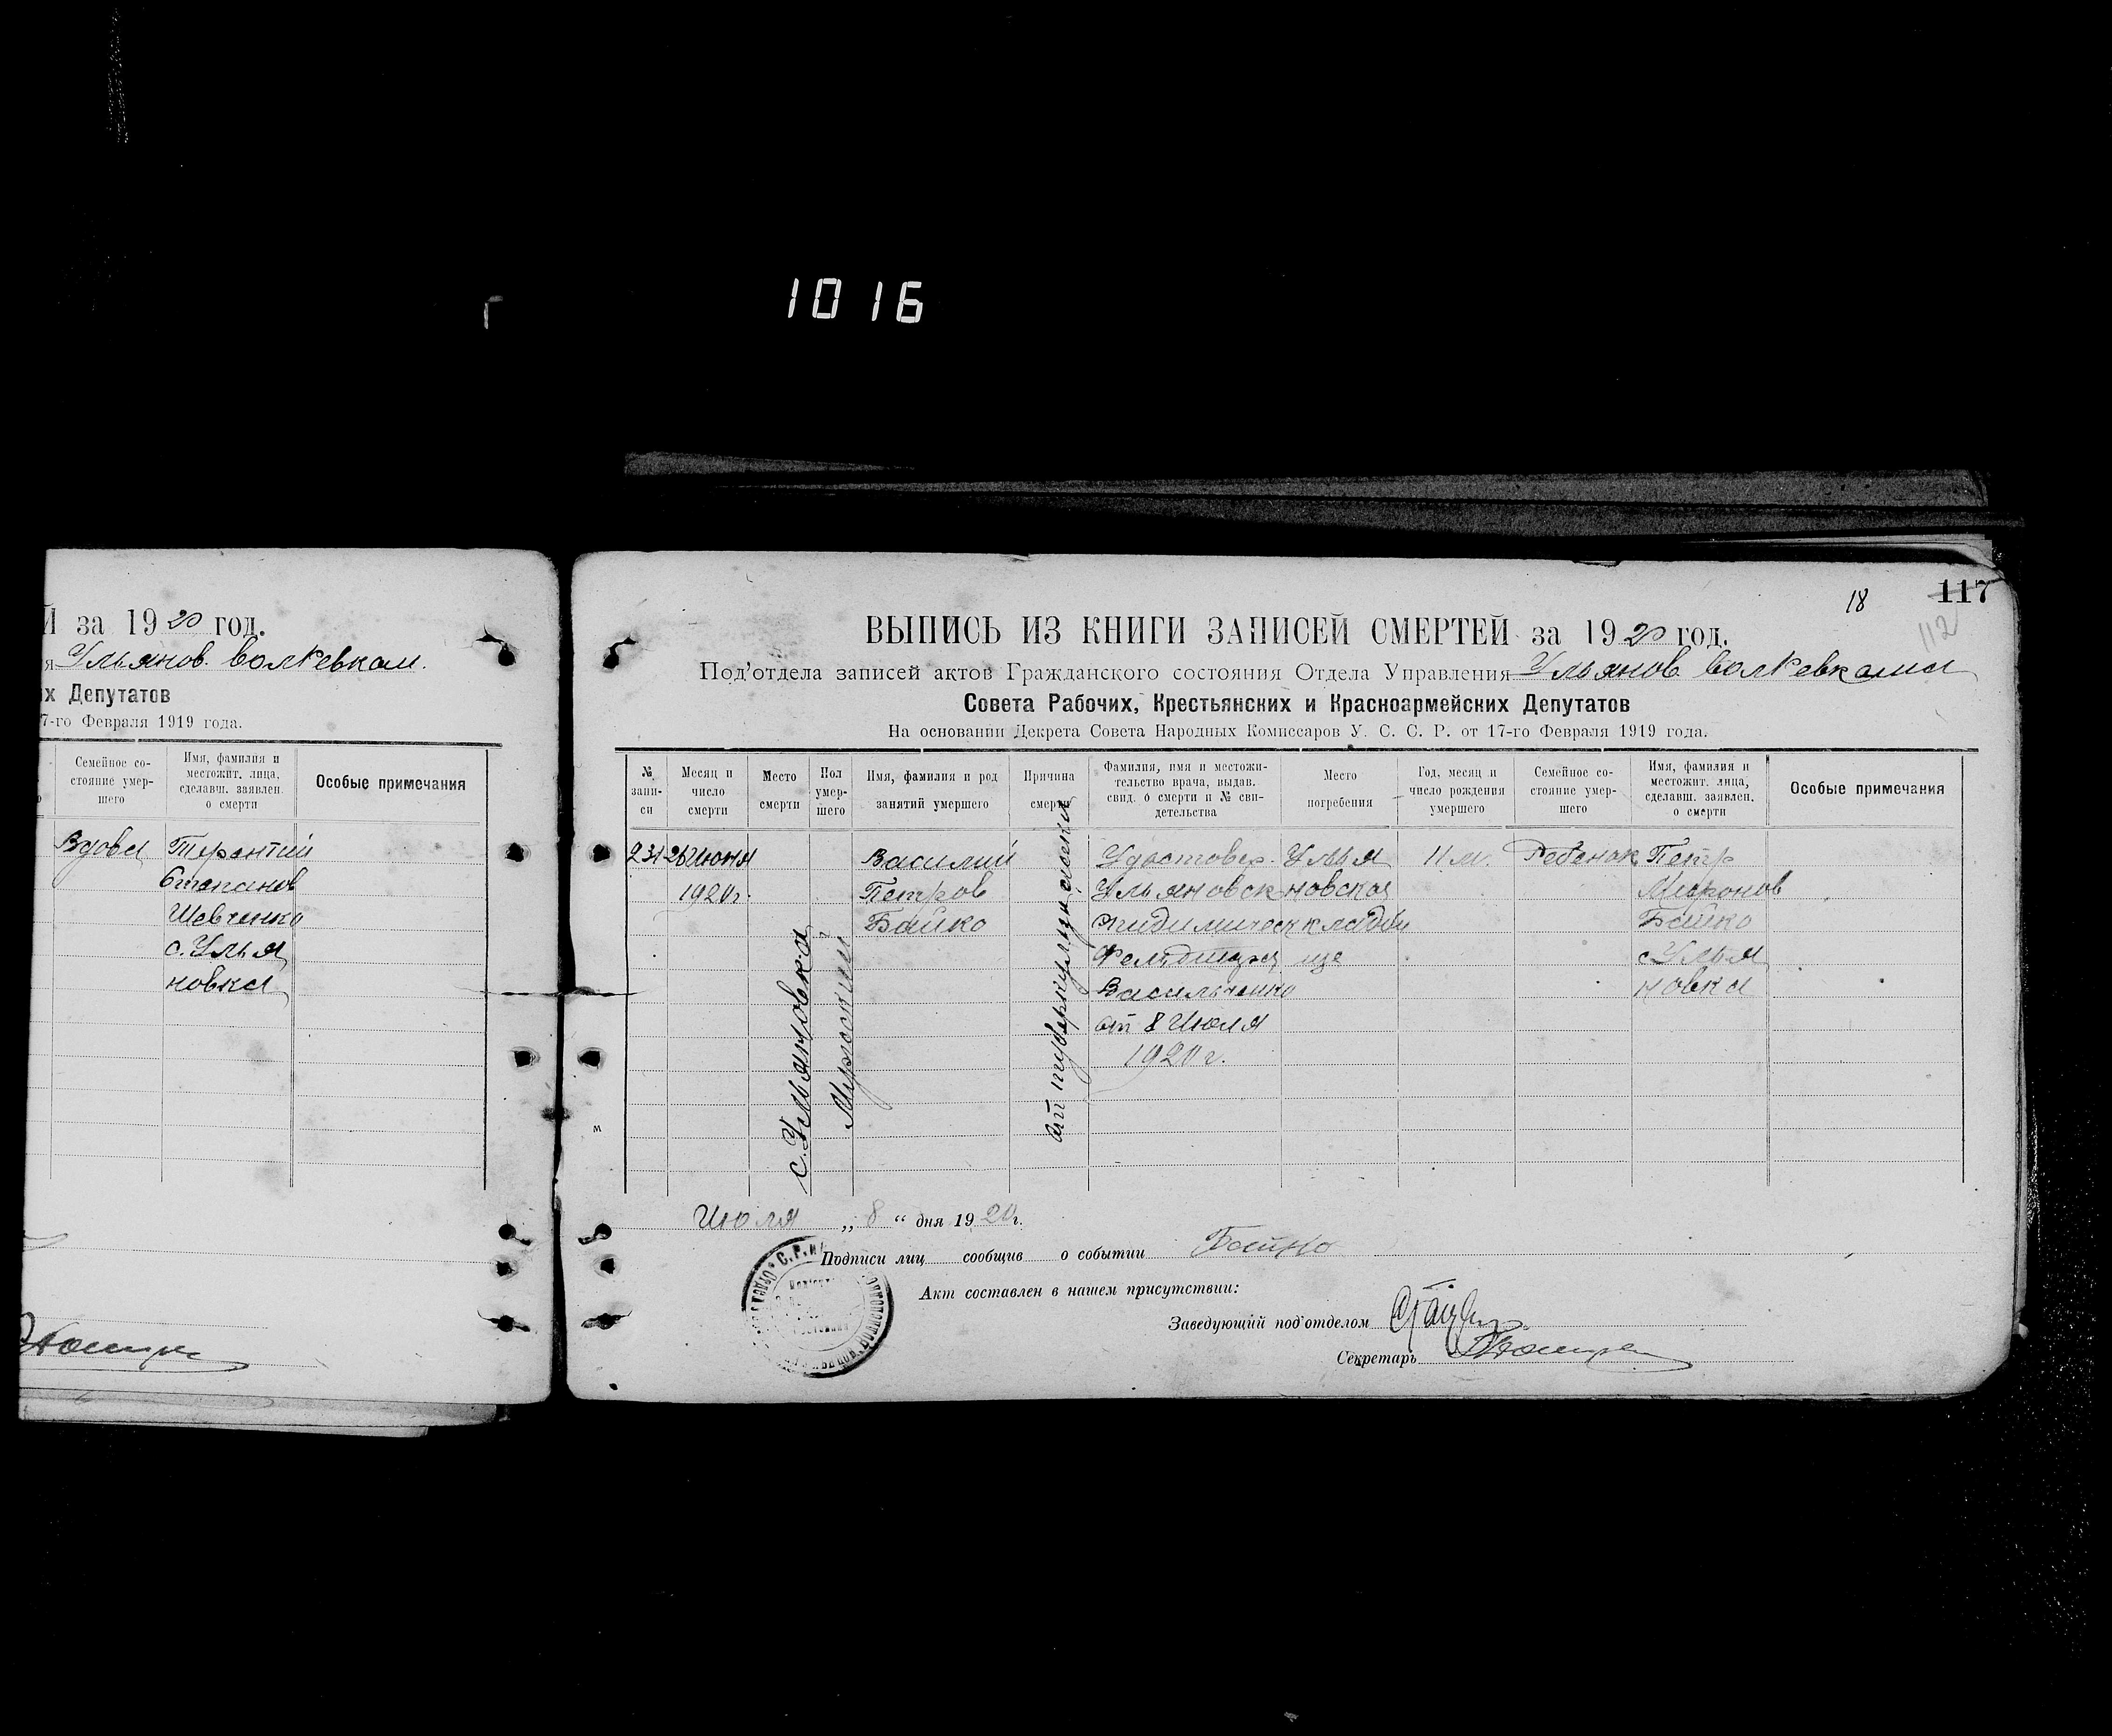 1016
Й за 1920 год.
я Ульянов. волРевком.
х Депутатов
7-го Февраля 1919 года.
Семейное со-
стояние умер-
шего
Имя, фамилия и
местожит. лица,
сделавш. заявлен.
о смерти
Особые примечания
Вдова
Терентий
Степанов
Шевченко
с. Улья
новка
18
117
112
ВЫПИСЬ ИЗ КНИГИ ЗАПИСЕЙ СМЕРТЕЙ за 1920 год.
Под'отдела записей актов Гражданского состояния Отдела Управления Ульянов. волРевкома
Совета Рабочих, Крестьянских и Красноармейских Депутатов
На основании Декрета Совета Народных Комиссаров У. С. С. Р. от 17-го Февраля 1919 года.
№
запи-
си
Месяц и
число
смерти
Место
смерти
Пол
умер-
шего
Имя, фамилия и род
занятий умершего
Причина
смерти
Фамилия, имя и местожи-
тельство врача, выдав.
свид. о смерти и № сви-
детельства
Место
погребения
Год, месяц и
число рождения
умершего
Семейное со-
стояние умер-
шего
Имя, фамилия и
местожит. лица,
сделавш. заявлен.
о смерти
Особые примечания
231
26 Июня
1920 г.
с. Ульяновка
Мужской
Василий
Петров
Бойко
от туберкулеза
Удостовер.
Ульяновск
Фельдшера
Васильченко
от 8 Июля
1920 г.
Улья
новское
кладби
ще
11 м.
Ребенок
Петр
Миронов
Бойко
с. Улья
новка
Июля „ 8 “ дня 1920 г.
Подписи лиц сообщив о событии Бойко
Акт составлен в нашем присутствии:
Заведующий под'отделом
Секретарь